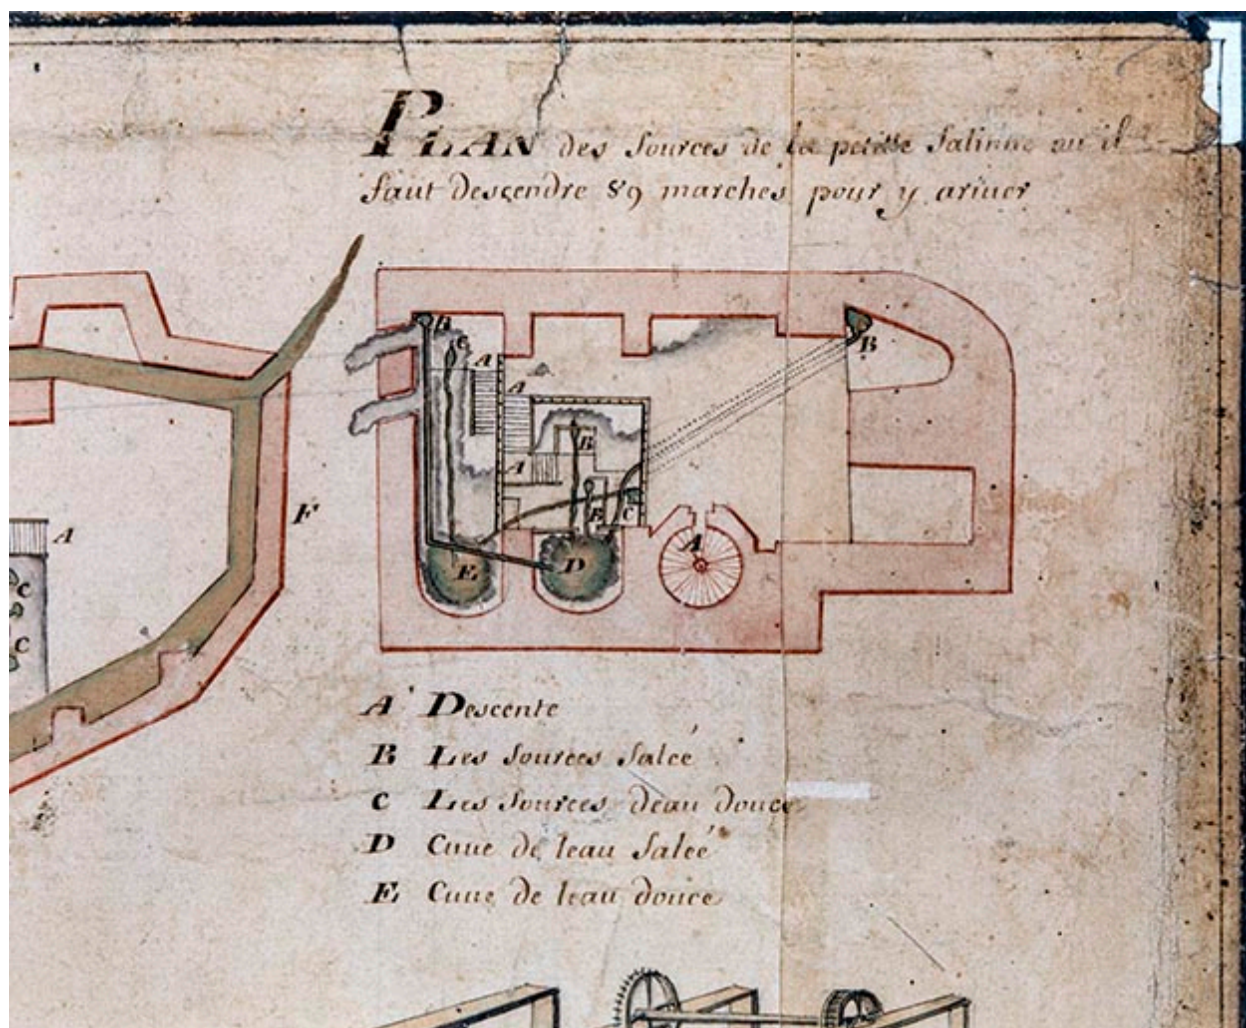 PLAN des sources de la petitte salinne ou il
faut descendre 89 marches pour y ariuer
B
c
A
A
B
B
A
B
C
A
E
D
F
A
C
C
A Descente
B Les sources salée
C Les sources deau douce
D Cuue de leau salée
E Cuue de leau douce